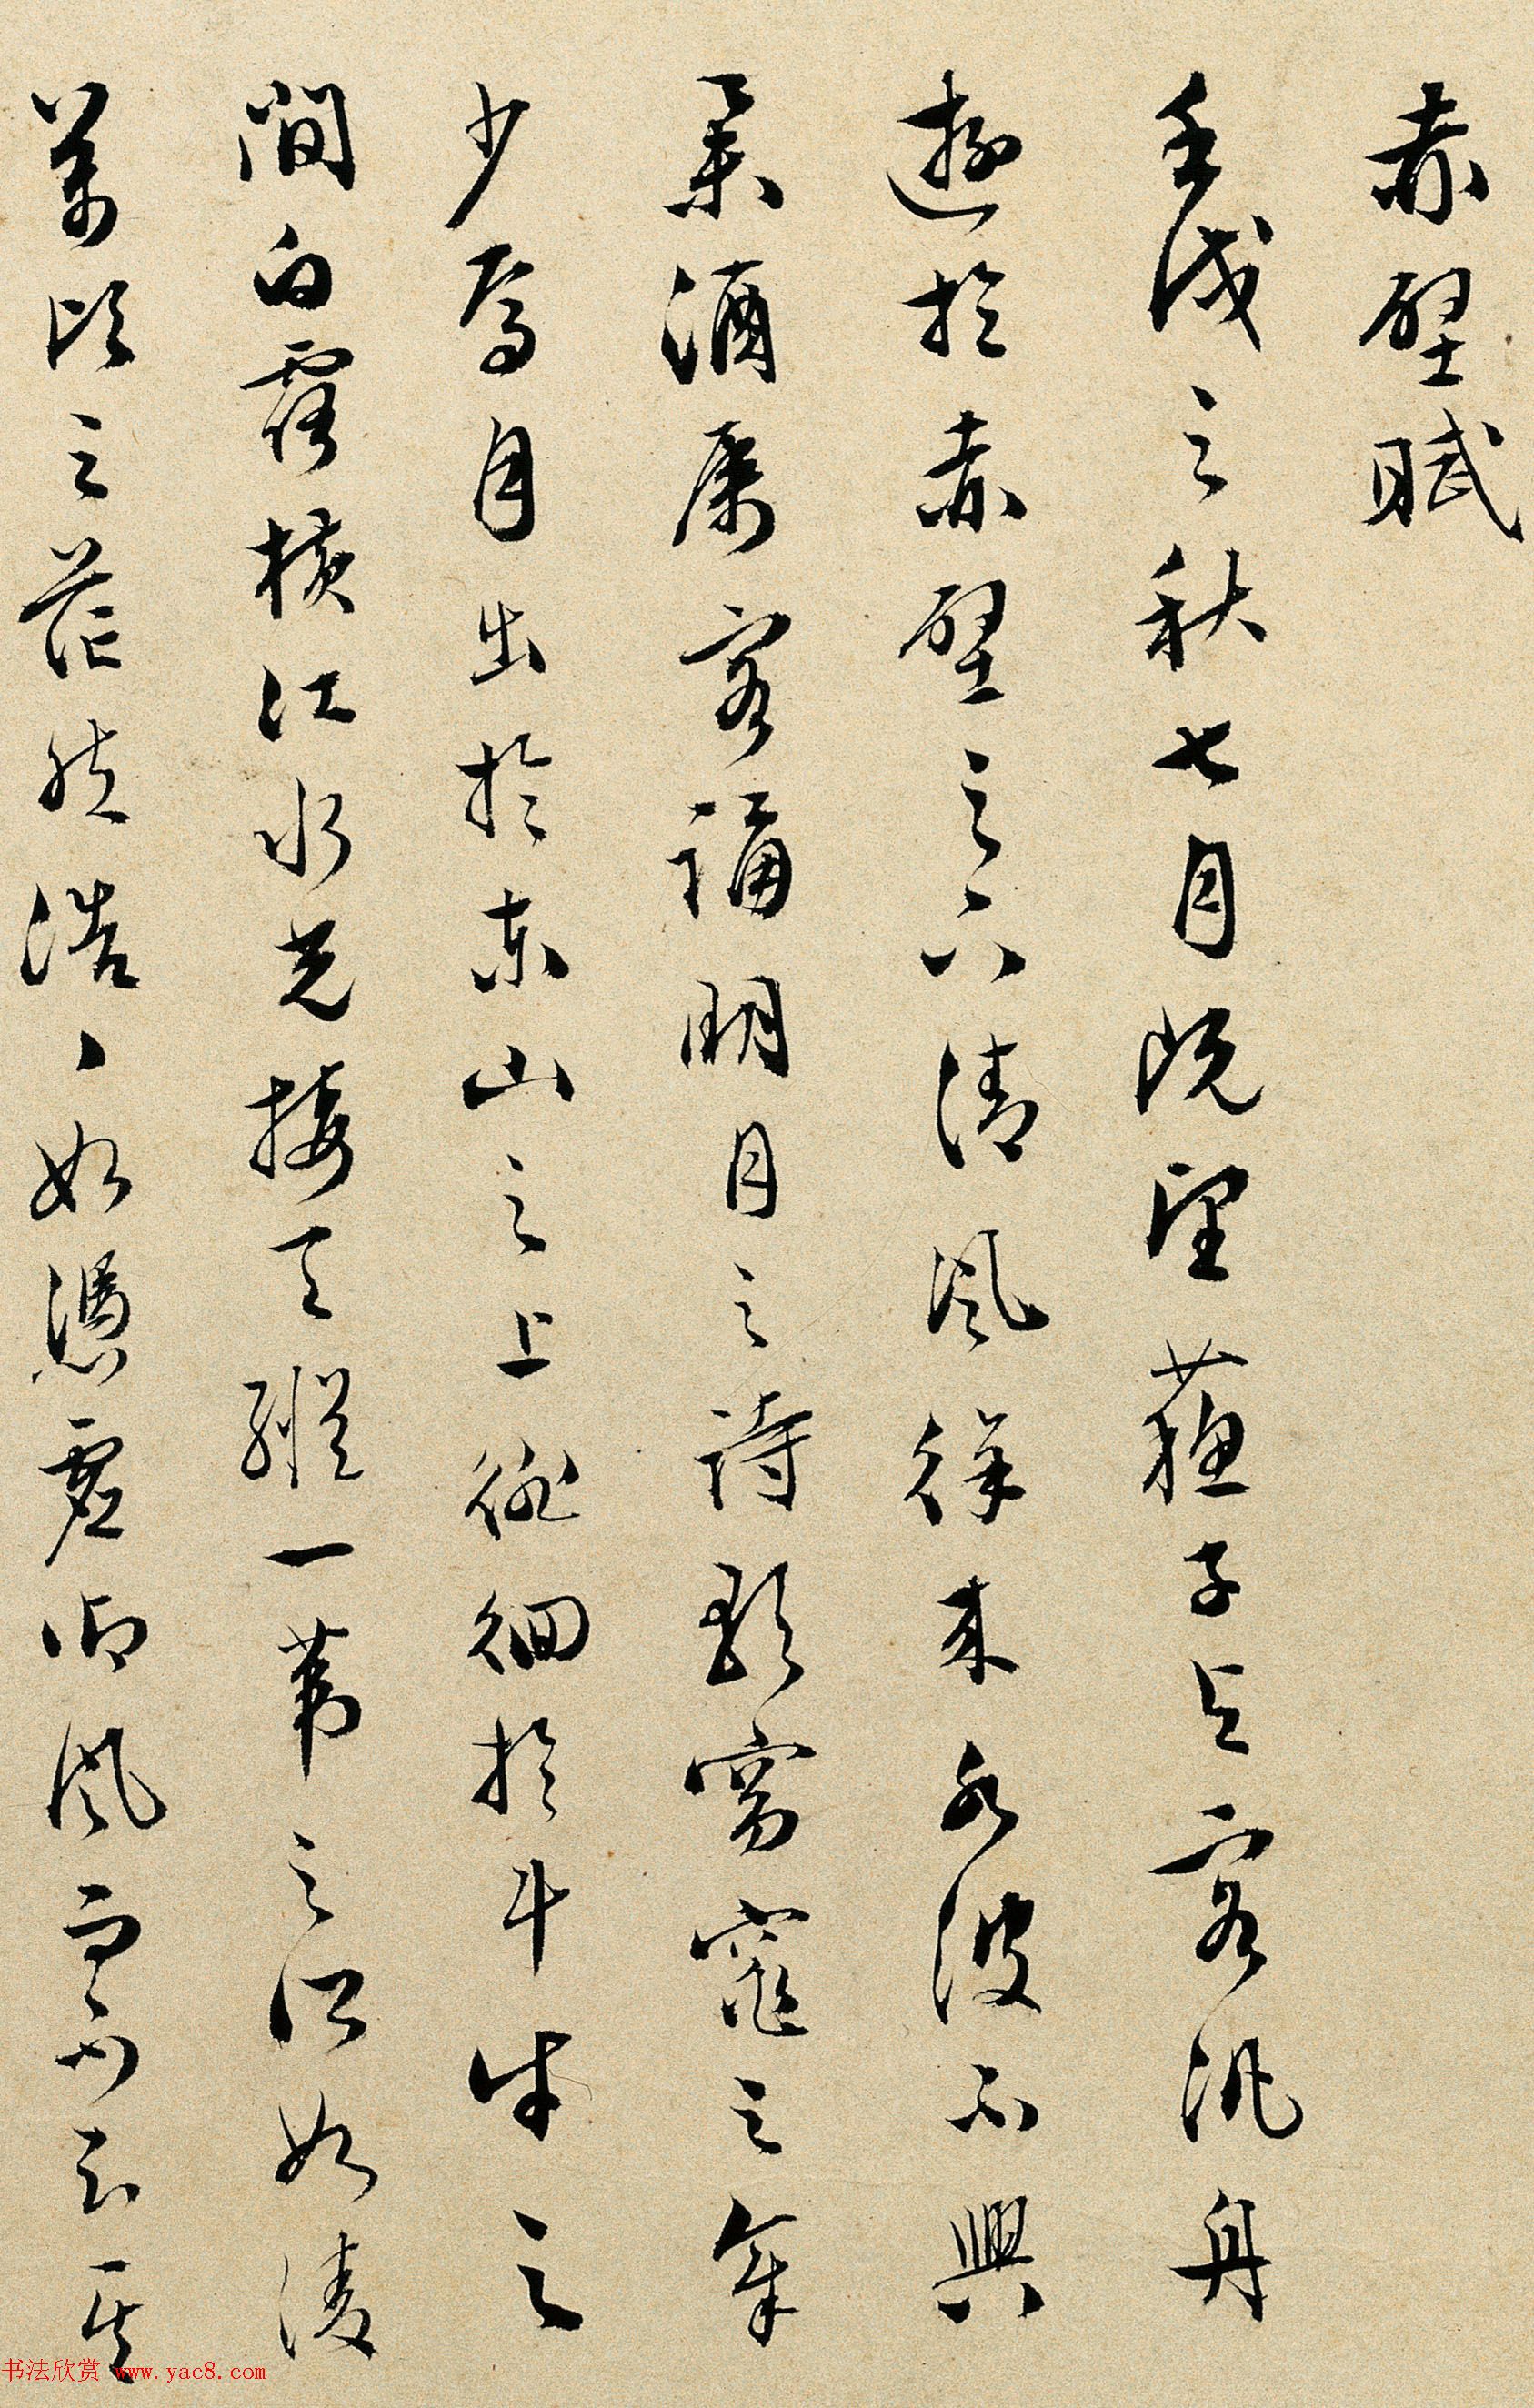 赤壁賦
壬戌之秋七月既望蘇子与客汎舟
遊於赤壁之下清風徐来水波不興
舉酒属客誦明月之詩歌窈窕之章
少焉月出於東山之上徘徊於斗牛之
間白露横江水光接天縱一葦之所如凌
萬頃之茫然浩〻如憑虚御風而不知其
书法欣赏 www.yac8.com